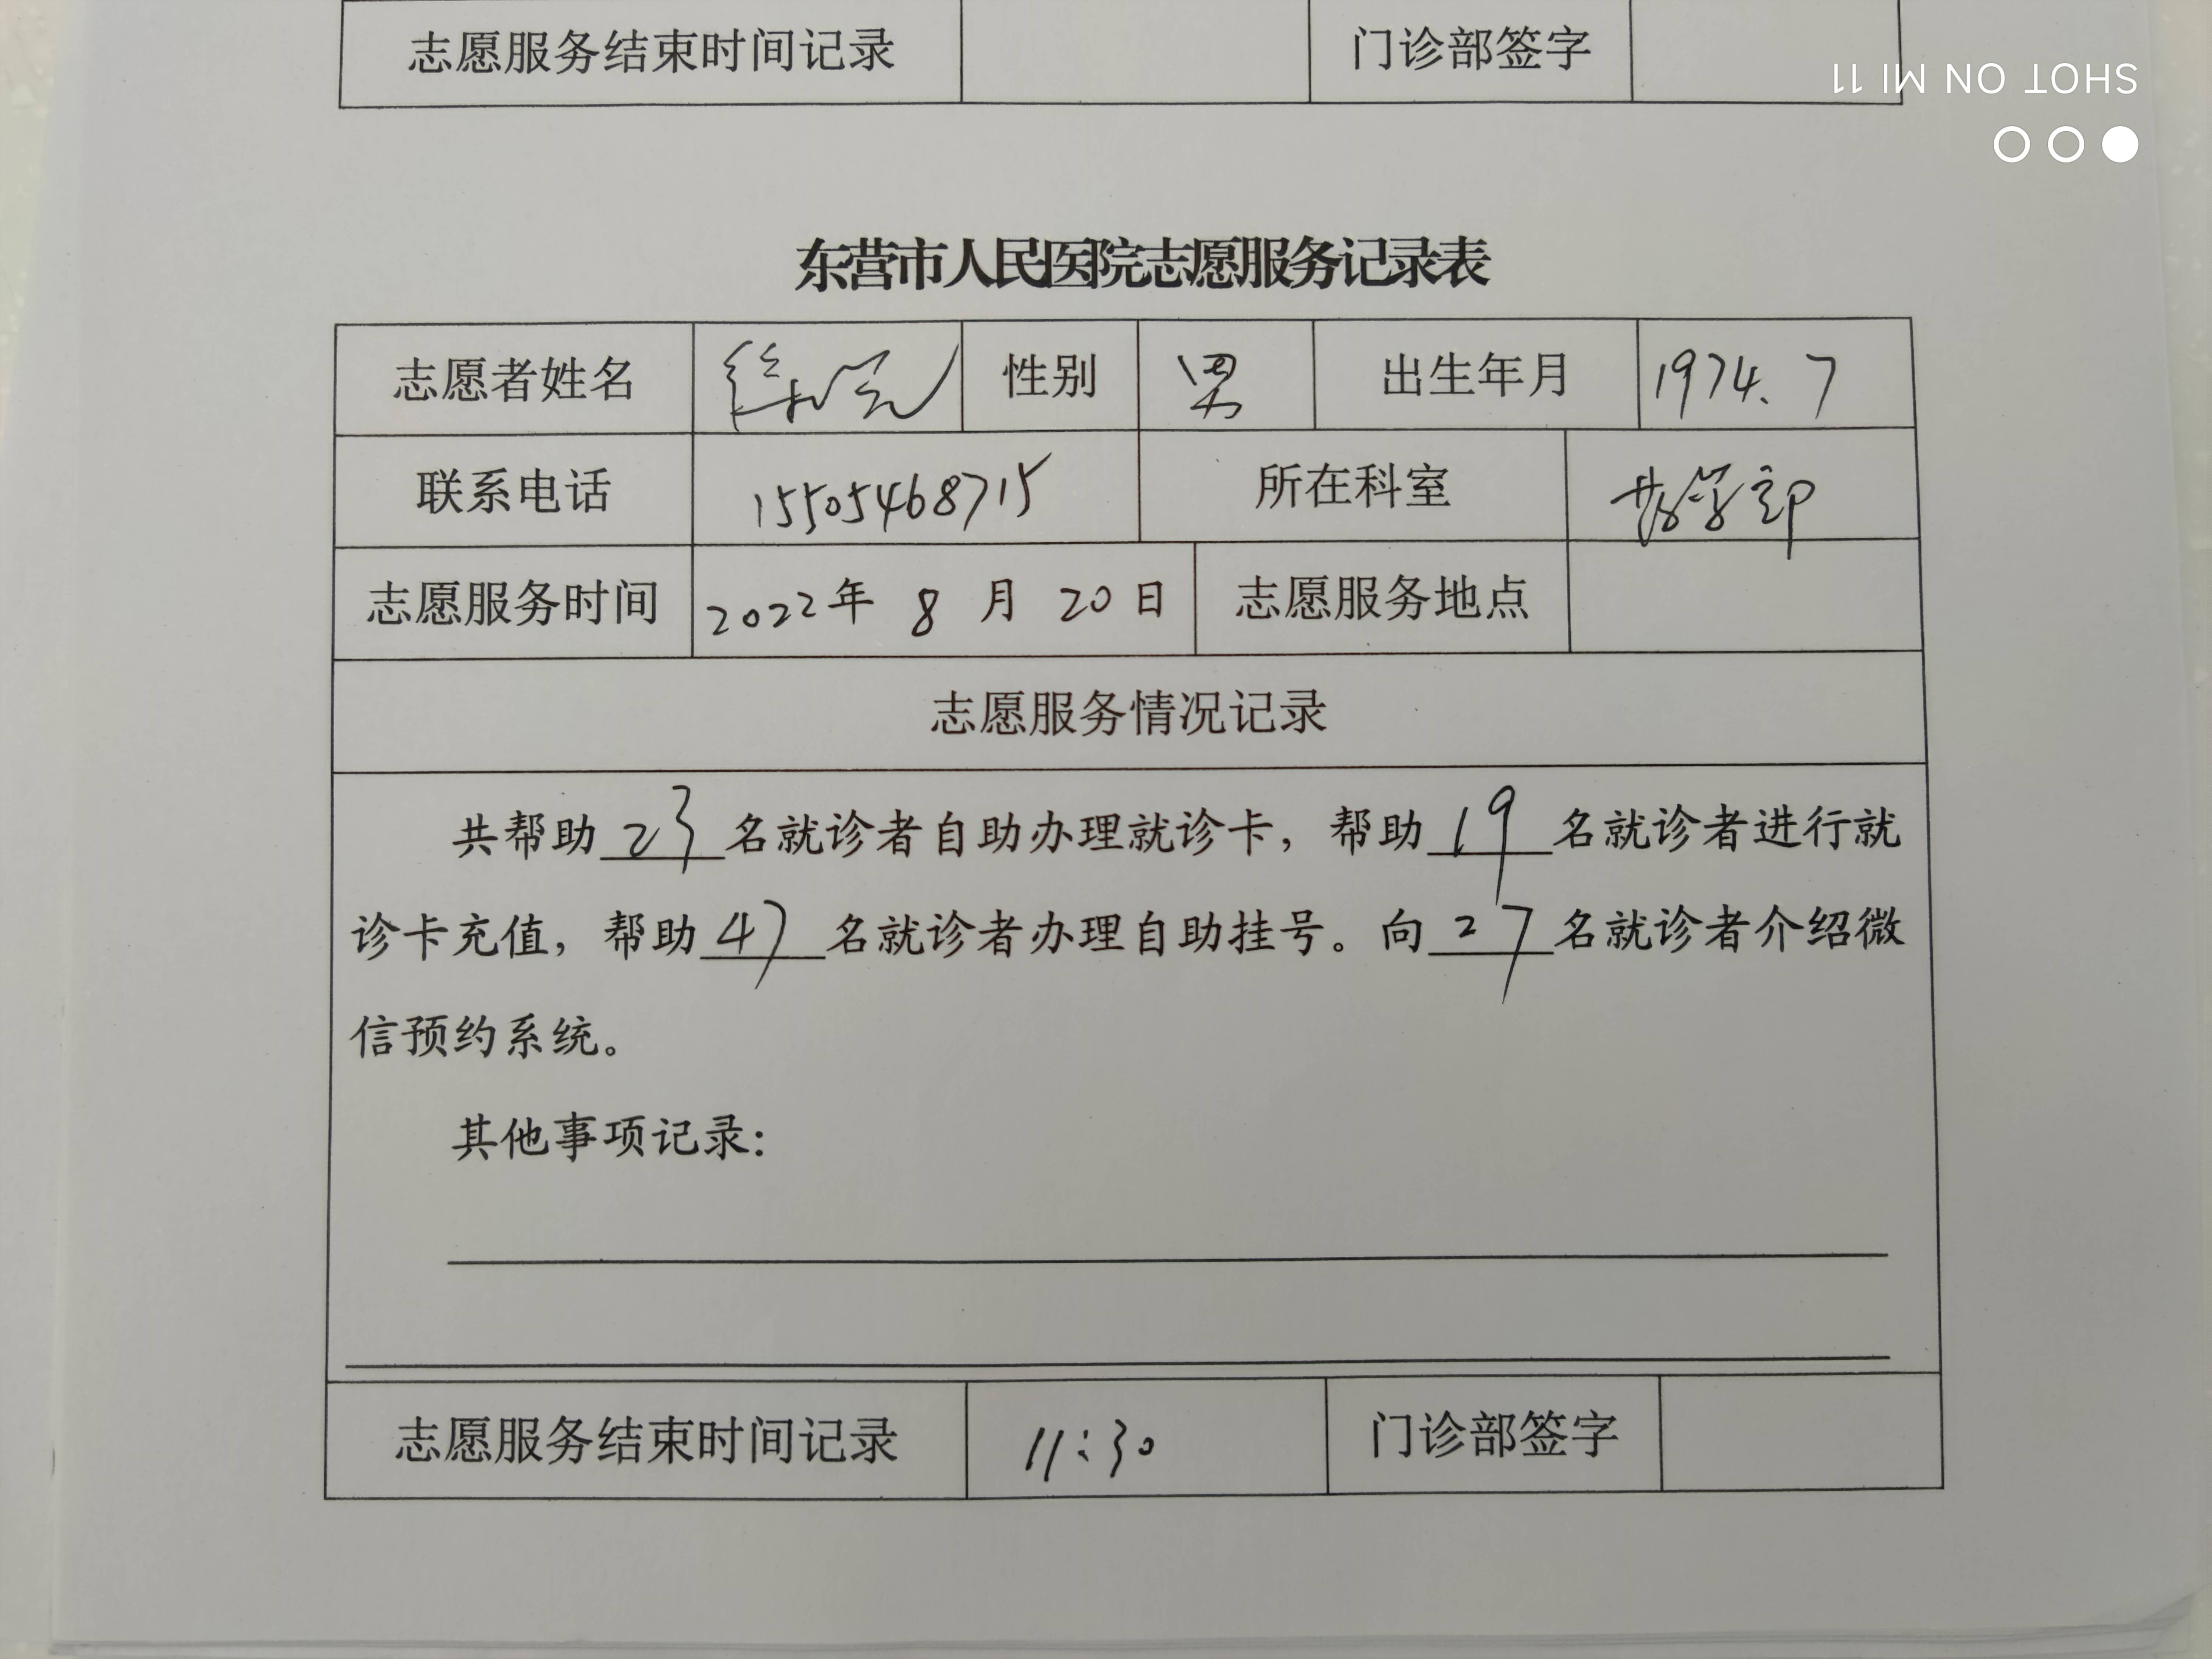 志愿服务结束时间记录 门诊部签字
SHOT ON MI 11
东营市人民医院志愿服务记录表
志愿者姓名 性别 男 出生年月 1974.7
联系电话 15505468715 所在科室 教学部
志愿服务时间 2022年 8 月 20 日 志愿服务地点
志愿服务情况记录
共帮助23名就诊者自助办理就诊卡，帮助19名就诊者进行就
诊卡充值，帮助47名就诊者办理自助挂号。向27名就诊者介绍微
信预约系统。
其他事项记录：
志愿服务结束时间记录 11:30 门诊部签字